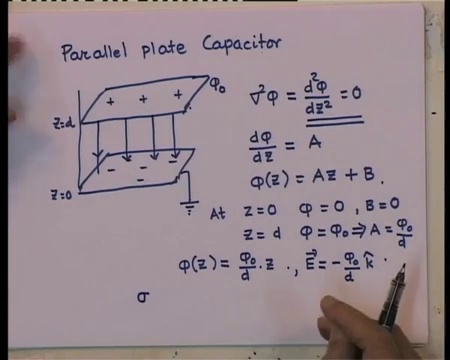 Parallel plate Capacitor
φ₀
+ + +
z=d
- - -
-
z=0
∇²φ = d²φ/dz² = 0
dφ/dz = A
φ(z) = Az + B.
At z=0 φ=0, B=0
z=d φ=φ₀ ⇒ A = φ₀/d
φ(z) = φ₀/d · z ., E⃗ = -φ₀/d k̂ .
σ